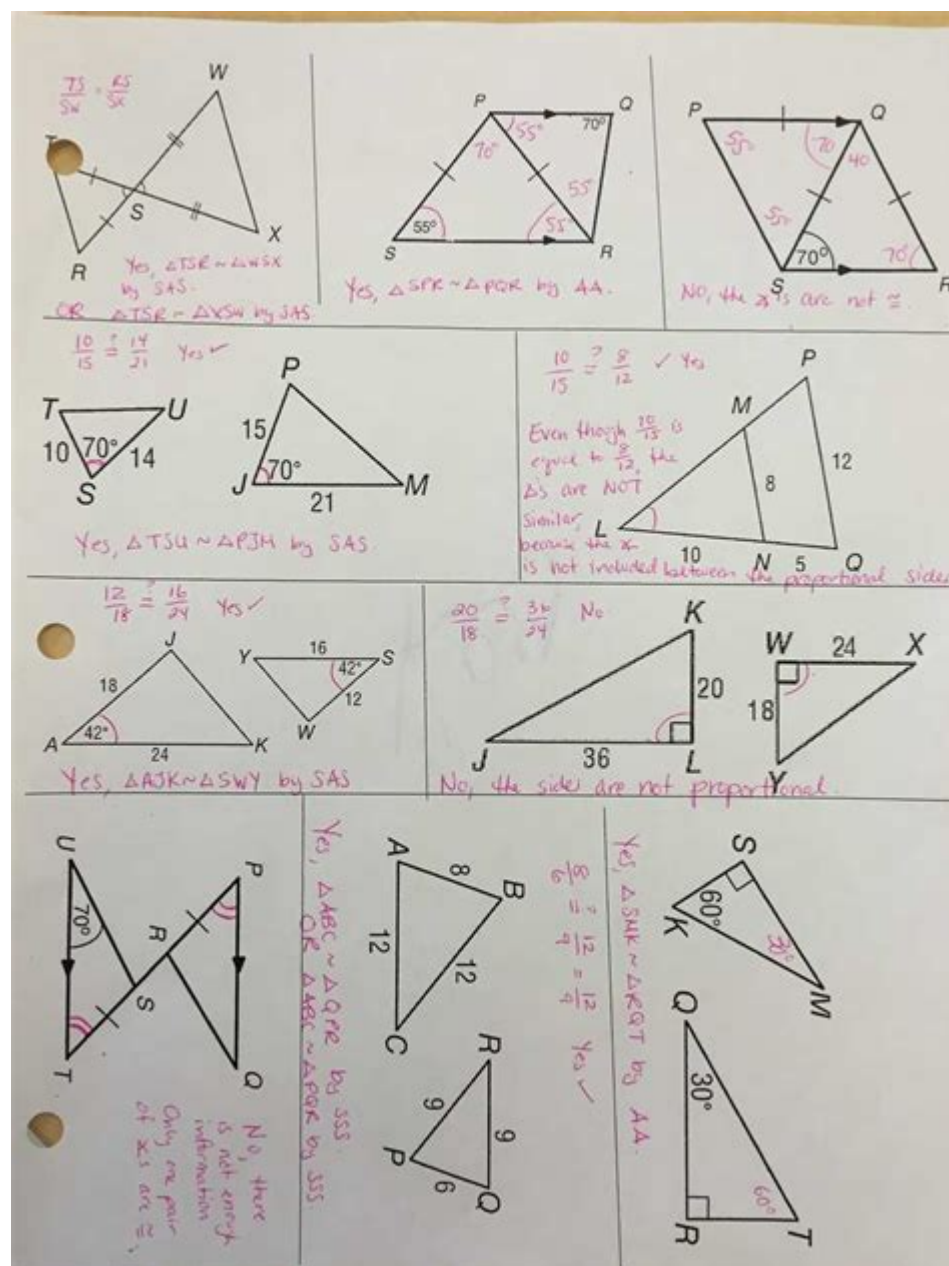 TS/SW = RS/SX
W
S
X
R
Yes, △TSR ~ △WSX
by SAS.
OR △TSR ~ △XSW by SAS
P
Q
55°
70°
70°
55
55°
55°
S
R
Yes, △SPR ~ △PQR by AA.
P
Q
55°
70
40
55°
70°
70°
S
R
No, the ∡'s are not ≅.
10/15 ?= 14/21 Yes ✓
T
U
10
70°
14
S
P
15
J
70°
M
21
Yes, △TSU ~ △PJM by SAS.
10/15 ?= 8/12 ✓ Yes
P
M
Even though 10/15 is
equal to 8/12, the
△s are NOT
similar,
because the ∡
is not included between the proportional sides
12
8
L
10
N
5
Q
12/18 ?= 16/24 Yes ✓
J
18
A
42°
K
24
Y
16
S
42°
12
W
Yes, △AJK ~ △SWY by SAS
20/18 ?= 36/24 No
K
20
J
36
L
W
24
X
18
Y
No, the sides are not proportional.
U
P
70°
R
S
T
Q
No, there
is not enough
information
Only one pair
of ∡s are ≅.
A
8
B
12
12
C
R
9
9
P
6
Q
8/6 ?= 12/9 = 12/9 Yes ✓
Yes, △ABC ~ △QPR by SSS.
OR △ABC ~ △PQR by SSS
S
60°
K
30°
M
Q
30°
60°
R
T
Yes, △SMK ~ △RQT by AA.